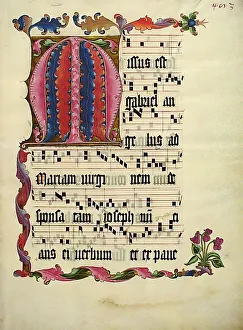 M issus est
gabriel an
gelus ad
Mariam virgi nem
sponsa tam ioseph
ans ei verbum et ex pave